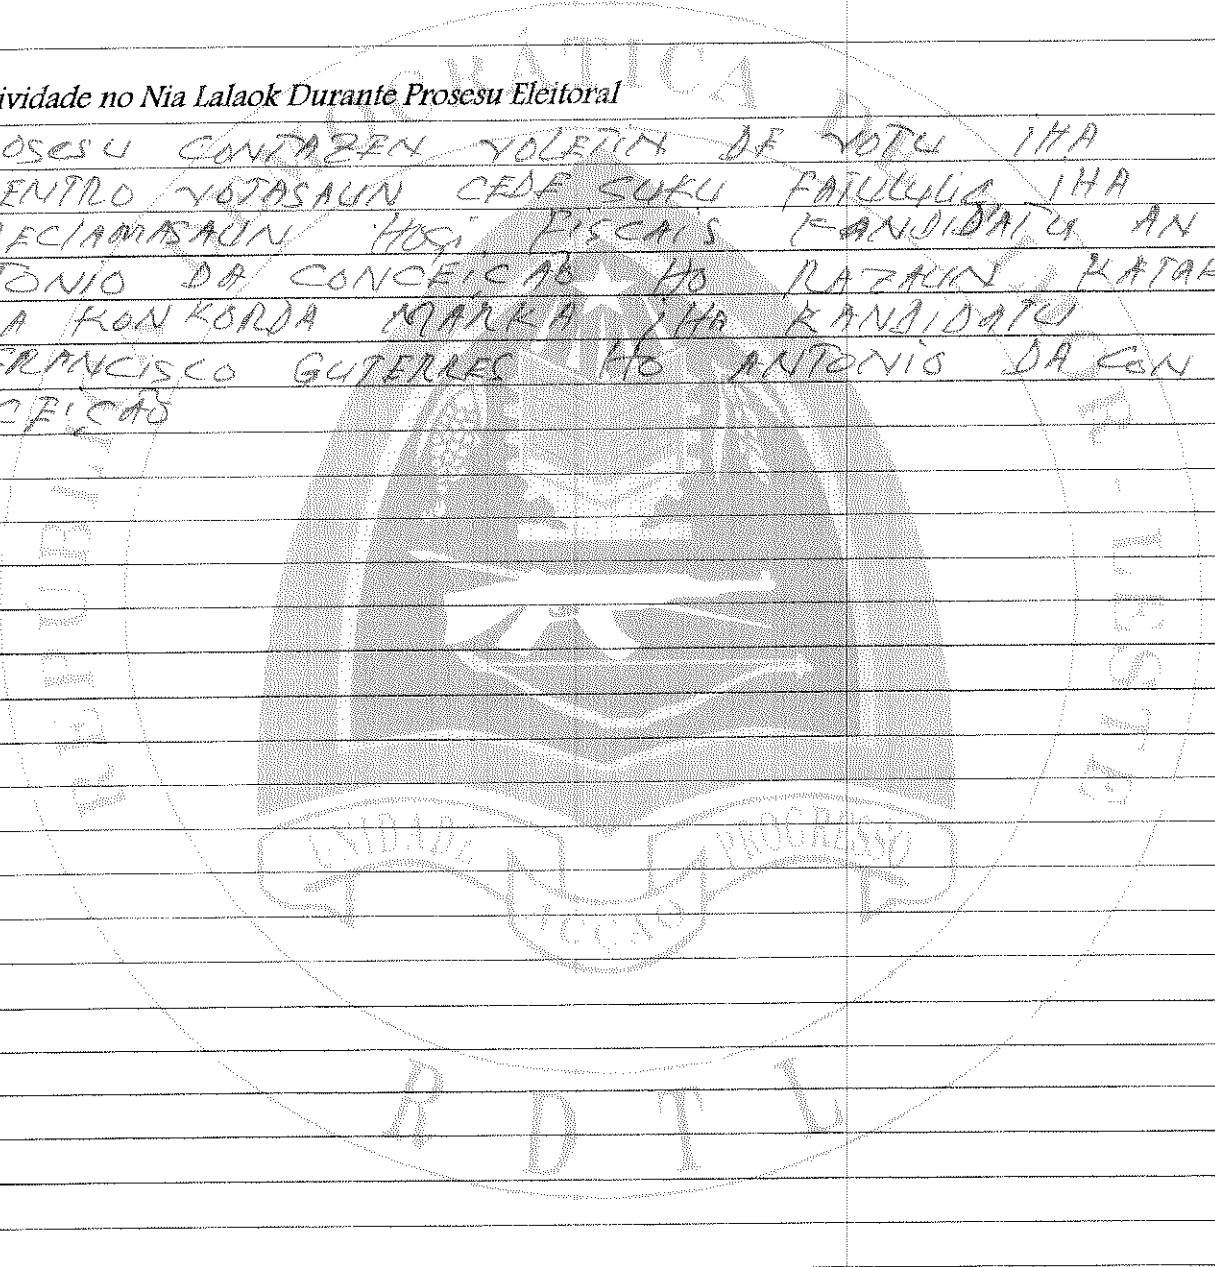 OCRÁTICA D
ividade no Nia Lalaok Durante Prosesu Eleitoral
osesu CONTAZEN VOLETIN DE VOTU IHA
ENTRO VOTASAUN CEDE SUKU FATULULIC IHA
ECLAMASAUN HOSI FISCAIS KANDIDATU AN
TONIO DA CONCEICAO HO RAZAUN KATAK
A KONKORDA MARKA IHA KANDIDATU
FRANCISCO GUTERRES HO ANTONIO DA CON
CEICAO
REPÚBL
OR-LESTE
UNIDADE
ACÇÃO
PROGRESSO
R D T L